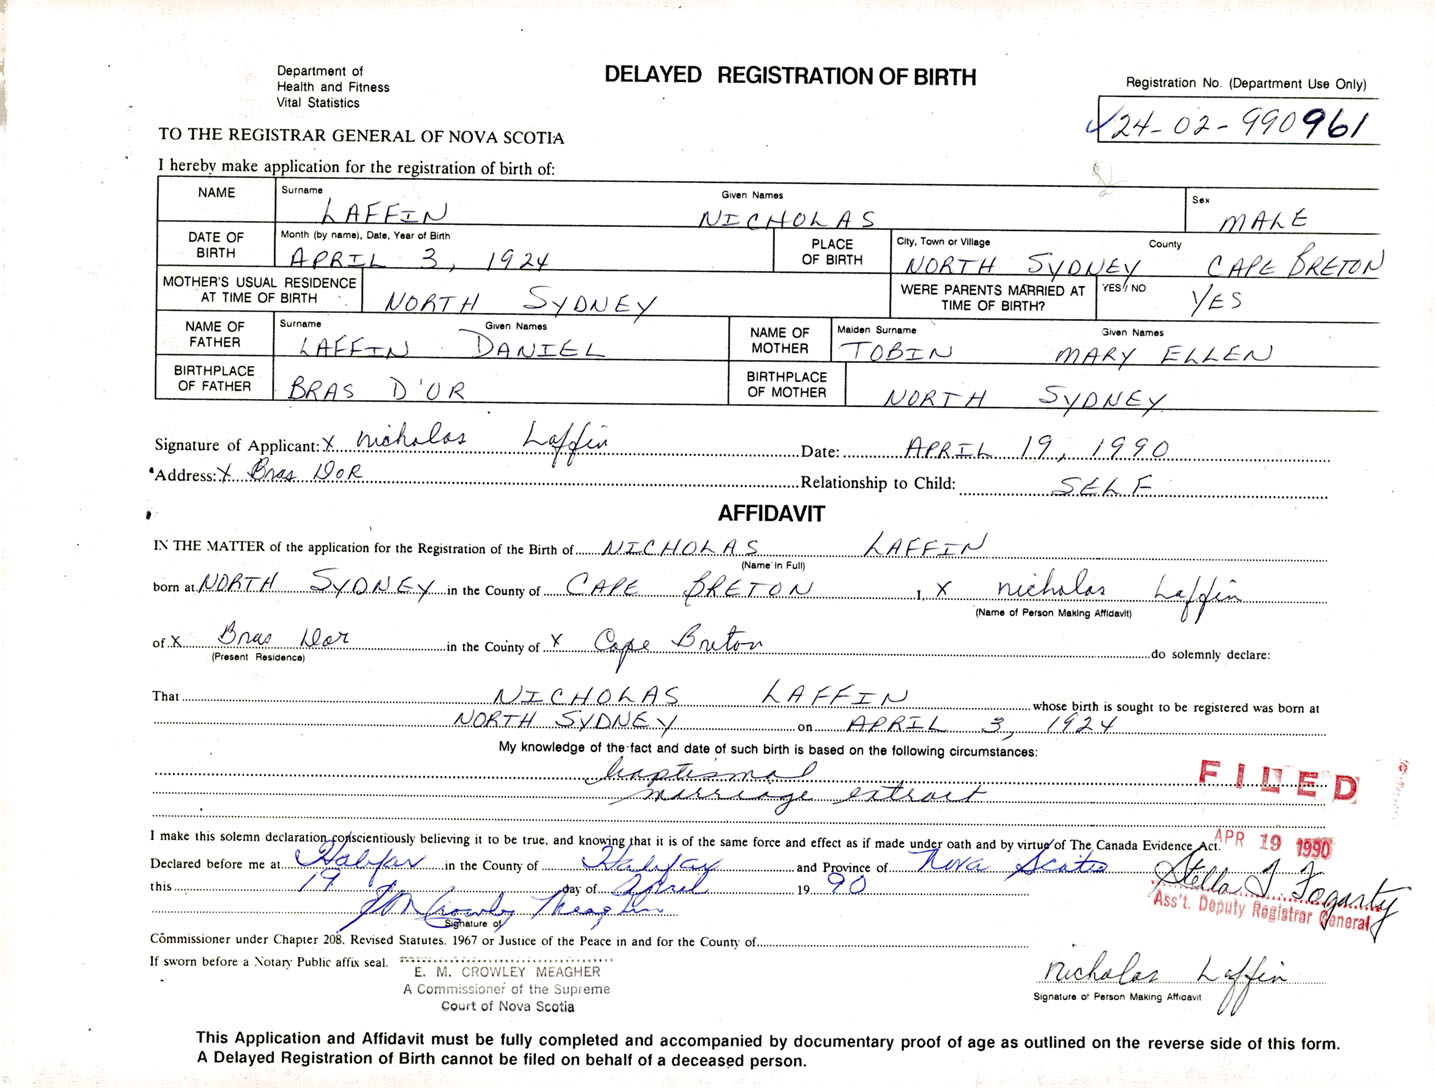 Department of
Health and Fitness
Vital Statistics
DELAYED REGISTRATION OF BIRTH
Registration No. (Department Use Only)
24-02-990961
TO THE REGISTRAR GENERAL OF NOVA SCOTIA
I hereby make application for the registration of birth of:
NAME Surname LAFFIN Given Names NICHOLAS Sex MALE
DATE OF BIRTH Month (by name), Date, Year of Birth APRIL 3, 1924 PLACE OF BIRTH City, Town or Village NORTH SYDNEY County CAPE BRETON
MOTHER'S USUAL RESIDENCE AT TIME OF BIRTH NORTH SYDNEY WERE PARENTS MARRIED AT TIME OF BIRTH? YES / NO YES
NAME OF FATHER Surname LAFFIN Given Names DANIEL NAME OF MOTHER Maiden Surname TOBIN Given Names MARY ELLEN
BIRTHPLACE OF FATHER BRAS D'OR BIRTHPLACE OF MOTHER NORTH SYDNEY
Signature of Applicant: X Nicholas Laffin Date: APRIL 19, 1990
Address: X Bras DOR Relationship to Child: SELF
AFFIDAVIT
IN THE MATTER of the application for the Registration of the Birth of NICHOLAS LAFFIN
(Name in Full)
born at NORTH SYDNEY in the County of CAPE BRETON I, X Nicholas Laffin
(Name of Person Making Affidavit)
of X Bras Dor in the County of X Cape Breton do solemnly declare:
(Present Residence)
That NICHOLAS LAFFIN whose birth is sought to be registered was born at
NORTH SYDNEY on APRIL 3, 1924
My knowledge of the fact and date of such birth is based on the following circumstances:
baptismal
marriage extract
FILED
I make this solemn declaration conscientiously believing it to be true, and knowing that it is of the same force and effect as if made under oath and by virtue of The Canada Evidence Act.
APR 19 1990
Declared before me at Halifax in the County of Halifax and Province of Nova Scotia
this 19 day of April 1990
Stella J Fogarty
Ass't. Deputy Registrar General
EM Crowley Meagher
Signature of
Commissioner under Chapter 208, Revised Statutes, 1967 or Justice of the Peace in and for the County of
If sworn before a Notary Public affix seal.
E. M. CROWLEY MEAGHER
A Commissioner of the Supreme
Court of Nova Scotia
Nicholas Laffin
Signature of Person Making Affidavit
This Application and Affidavit must be fully completed and accompanied by documentary proof of age as outlined on the reverse side of this form.
A Delayed Registration of Birth cannot be filed on behalf of a deceased person.